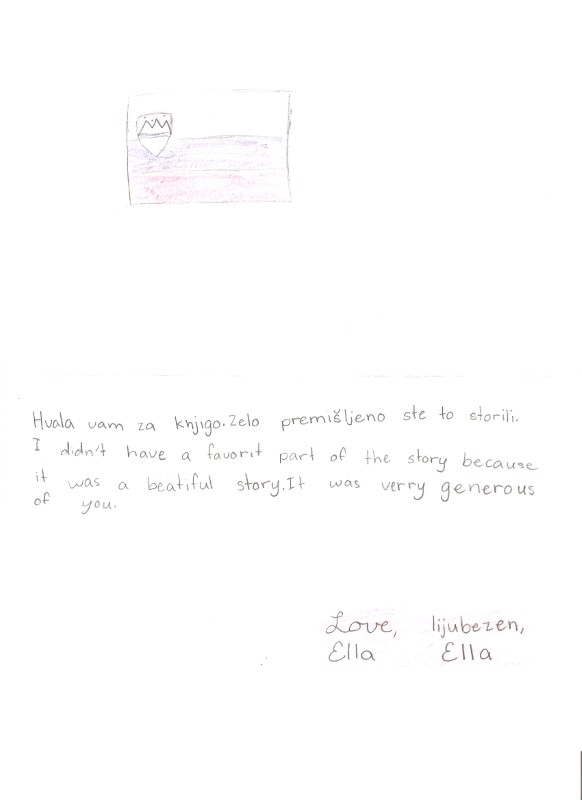 Hvala vam za knjigo. Zelo premišljeno ste to storili.
I didn't have a favorit part of the story because
it was a beatiful story. It was verry generous
of you.
Love, lijubezen,
Ella Ella